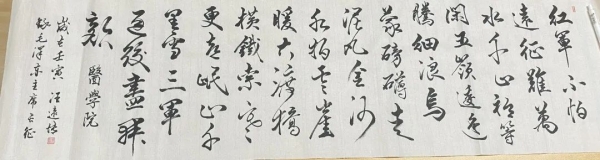 紅軍不怕
遠征難萬
水千山祗等
閑五嶺逶迤
騰細浪烏
蒙磅礴走
泥丸金沙
水拍雲崖
暖大渡橋
橫鐵索寒
更喜岷山千
里雪三軍
過後盡開
顏 醫學院
歲在壬寅 汪
錄毛澤東主席長征